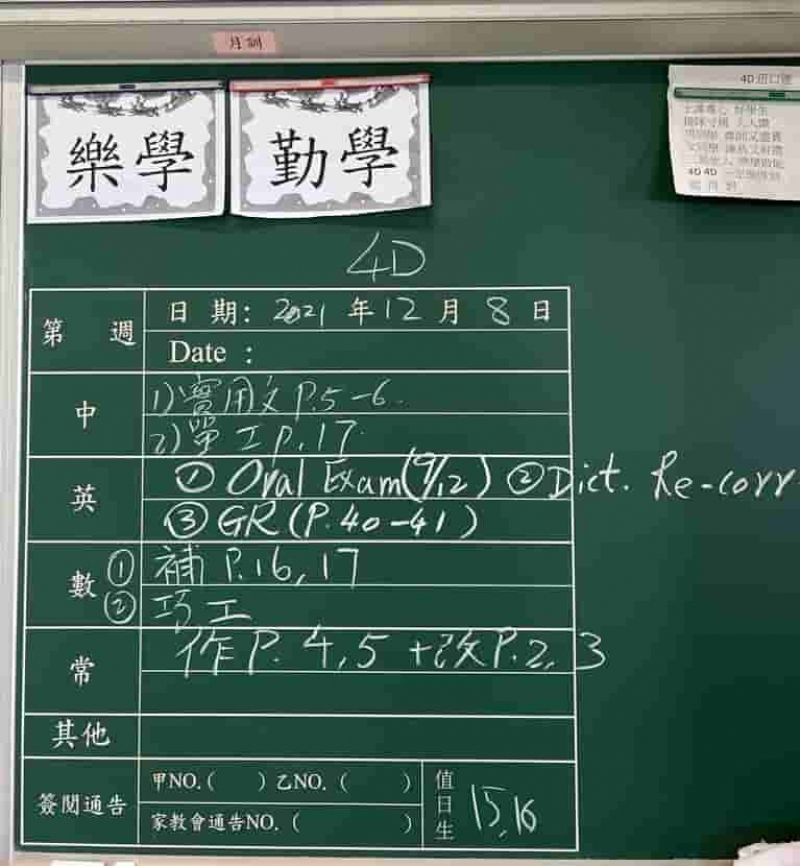 月訓
樂學
勤學
4D 班口號
4D 4D
4D
第 週
日 期: 2021 年 12 月 8 日
Date :
中
1) 實用文 P.5-6.
2) 單工 P.17.
英
① Oral Exam (9/12) ② Dict. Re-corr
③ GR (P.40-41)
數
① 補 P.16, 17
② 巧工
常
作 P. 4, 5 + 改 P. 2, 3
其他
簽閱通告
甲NO. ( ) 乙NO. ( )
家教會通告NO. ( )
值日生
15, 16